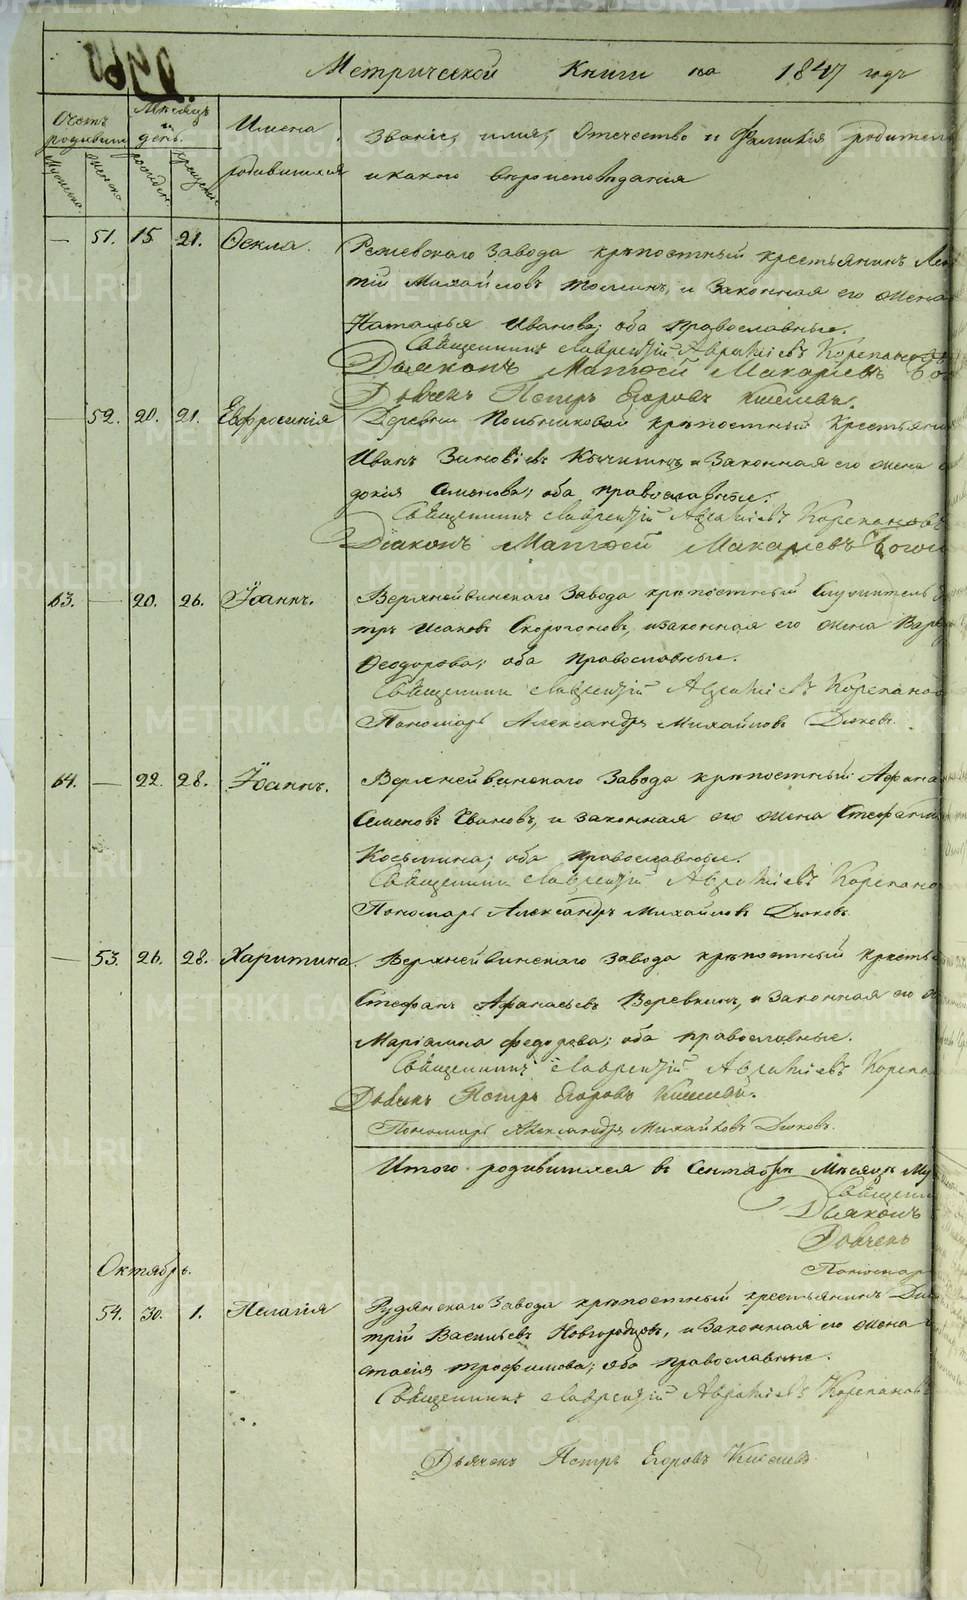 Метрической Книги на 1847 годъ
Счетъ родивших
Мѣсяцъ и день.
Имена родившихся
Званіе, имя, Отечество и Фамилія родителе
и какого вѣроисповѣданія
Мужеска. женска. рожден. крещен.
— 51. 15. 21. Ѳекла. Режевскаго Завода крѣпостный крестьянинъ Леон
тій Михайловъ и Законная его жена
Наталья Иванова; оба Православные.
Священникъ Лаврентій Авраміевъ Корепановъ
Дьяконъ Матѳей Макаріевъ Бог
Дьячекъ Петръ Егоровъ Киселевъ.
— 52. 20. 21. Евфросинія Деревни крѣпостный Крестьянин
Иванъ Зиновіевъ и Законная его жена
докія Семенова; оба православные.
Священникъ Лаврентій Авраміевъ Корепановъ
Діаконъ Матѳей Макаріевъ Богом
63. — 20. 26. Іоаннъ. Верхнейвинскаго Завода крѣпостный Служитель
тръ Исаковъ Скорогоновъ, и законная его жена Варв
Ѳеодорова; оба православные.
Священникъ Лаврентій Авраміевъ Корепанов
Пономарь Александръ Михайловъ Дюковъ.
64. — 22. 28. Іоаннъ. Верхнейвинскаго Завода крѣпостный Афана
Семеновъ Ивановъ, и законная его жена Стефани
Косьмина; оба православные.
Священникъ Лаврентій Авраміевъ Корепано
Пономарь Александръ Михайловъ Дюковъ.
— 53. 26. 28. Харитина. Верхнейвинскаго Завода крѣпостный кресть
Стефанъ Афанасьевъ Веревкинъ, и Законная его ж
Маріамна Федорова; оба православные.
Священникъ Лаврентій Авраміевъ Корепа
Дьячекъ Петръ Егоровъ Киселевъ.
Пономарь Александръ Михайловъ Дюковъ.
Итого родившихся въ Сентябрѣ Мѣсяцѣ Му
Священни
Дьяконъ
Дьячекъ
Пономар
Октябрь.
54. 30. 1. Пелагія Рудянскаго Завода крѣпостный крестьянинъ Дми
трій Васильевъ Новгородцовъ, и Законная его жена
стасія Трофимова; оба православные.
Священникъ Лаврентій Авраміевъ Корепановъ
Дьячекъ Петръ Егоровъ Киселевъ
METRIKI.GASO-URAL.RU